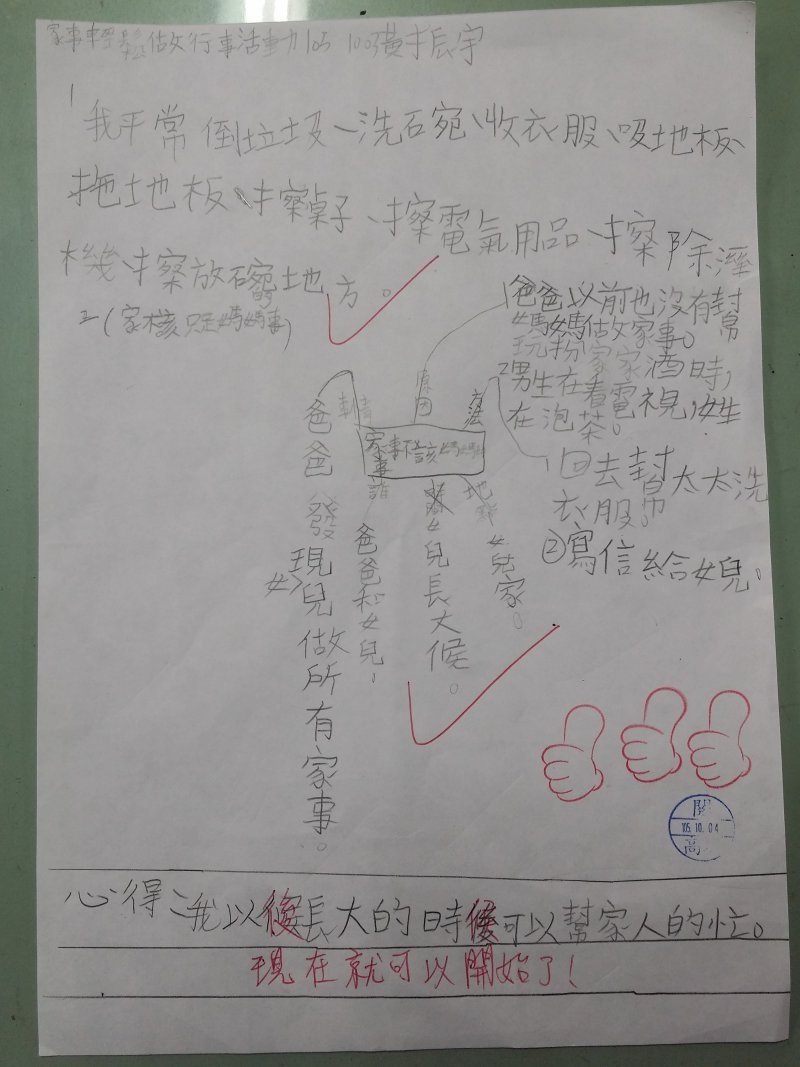 家事輕鬆做行事活動 105 10號黃振宇
1
我平常倒垃圾、洗碗、收衣服、吸地板、
拖地板、擦桌子、擦電氣用品、擦除溼
機、擦放碗的地方。
2(家事該只是媽媽事)
原因
1爸爸以前也沒有幫
媽媽做家事。
玩扮家家酒時,
2男生在看電視,女生
在泡茶。
方法
1回去幫太太洗
衣服。
②寫信給女兒。
事情
爸爸發現女兒做所有家事。
家事不該媽媽
誰
爸爸和女兒,
時
女兒長大候。
地
女兒家。
關
105.10.04
高
心得:我以後長大的時候可以幫家人的忙。
現在就可以開始了!